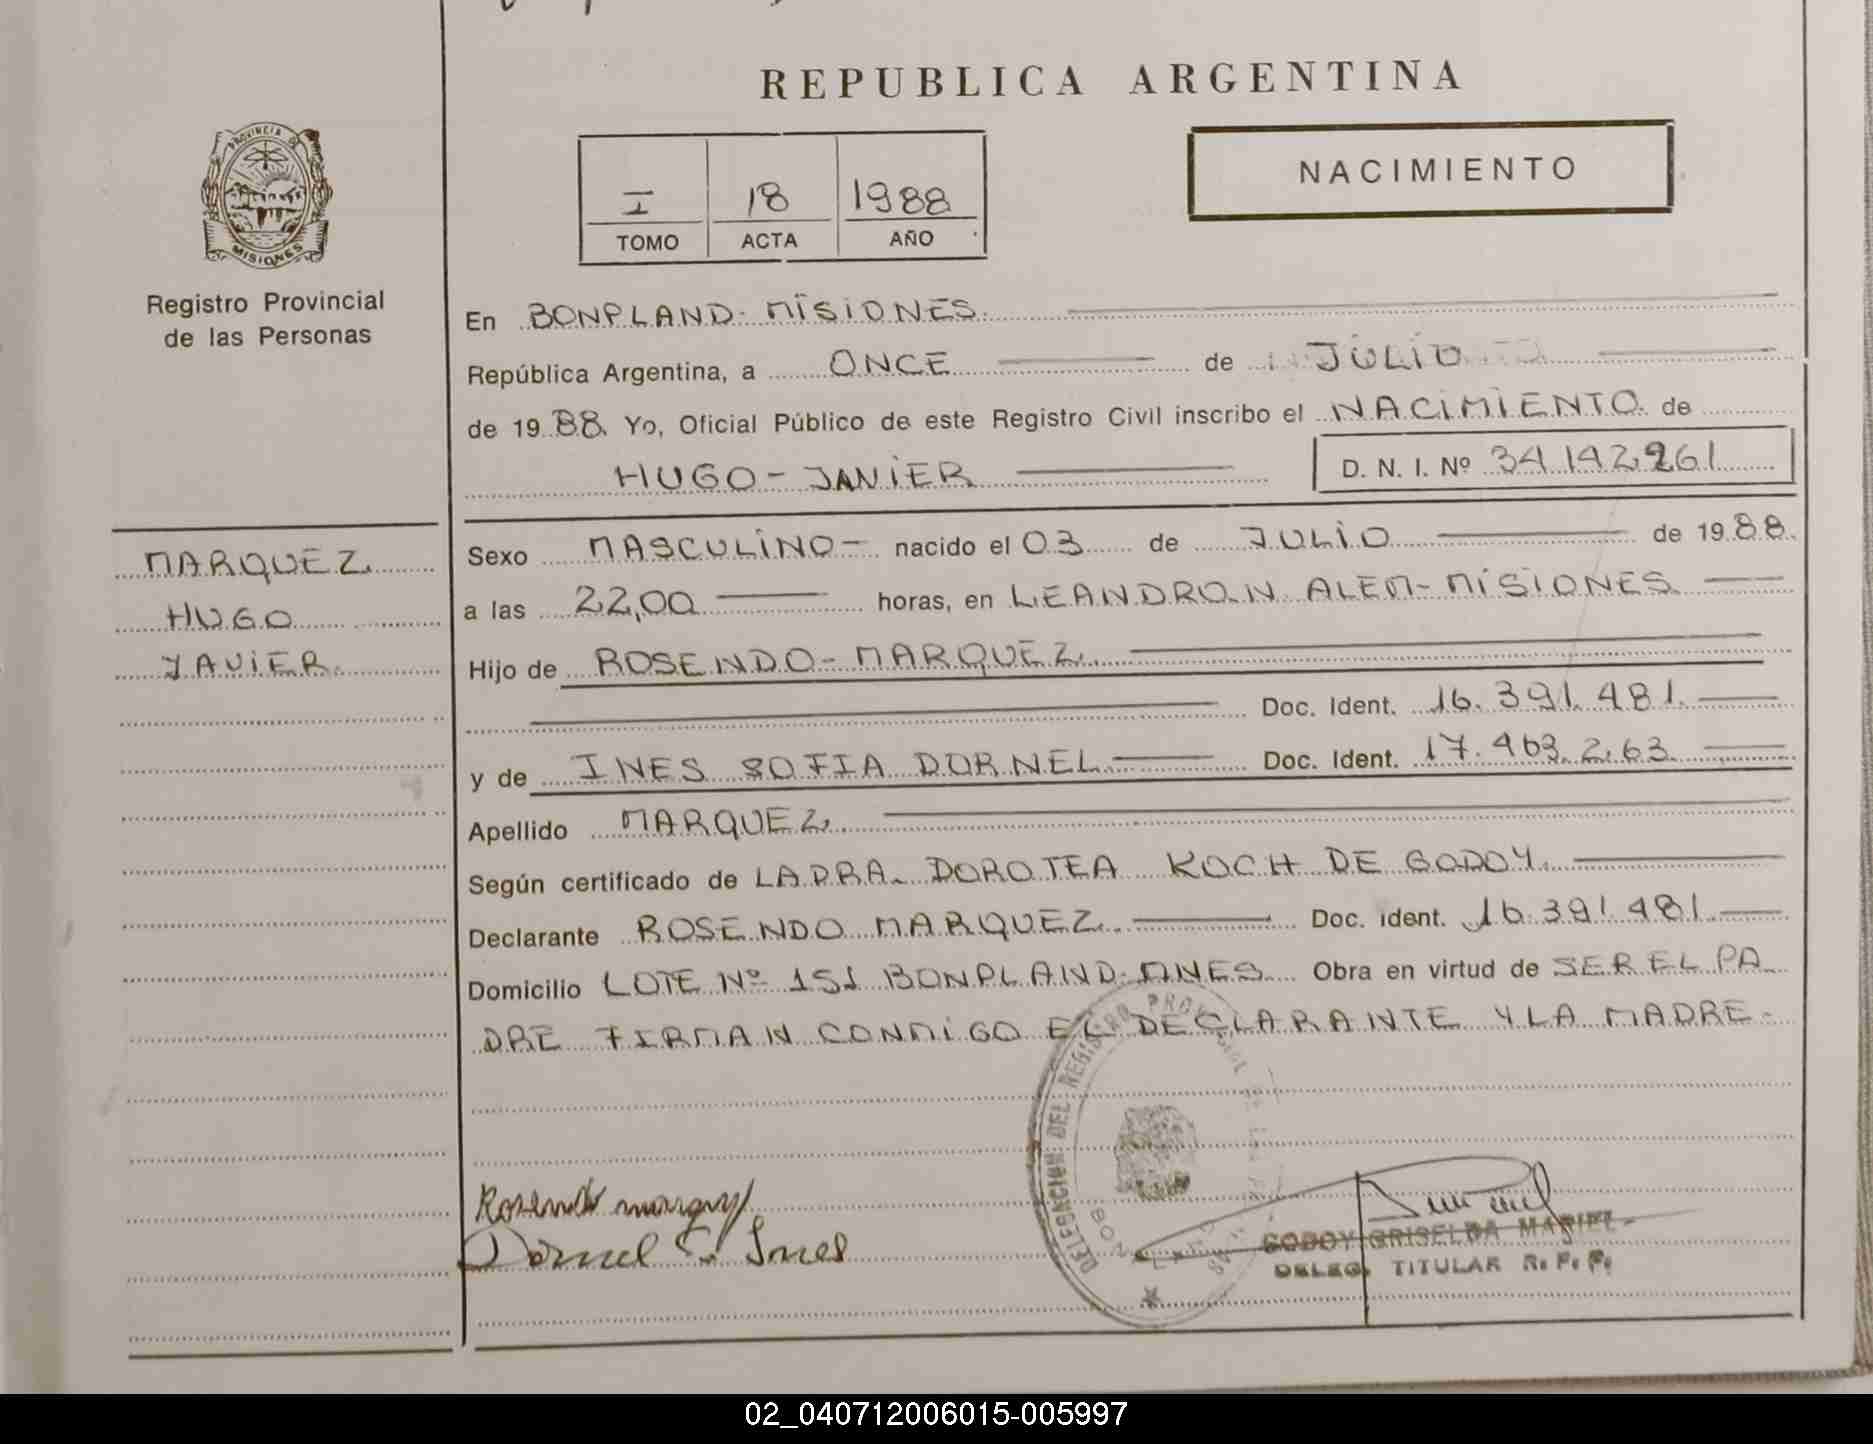 REPUBLICA ARGENTINA
PROVINCIA DE
MISIONES
Registro Provincial
de las Personas
I 18 1988
TOMO ACTA AÑO
NACIMIENTO
En BONPLAND. MISIONES.
República Argentina, a ONCE de JULIO
de 1988. Yo, Oficial Público de este Registro Civil inscribo el NACIMIENTO. de
HUGO-JAVIER D. N. I. Nº 34142261
MARQUEZ
HUGO
JAVIER.
Sexo MASCULINO- nacido el 03 de JULIO de 1988.
a las 22,00 horas, en LEANDRO.N. ALEM-MISIONES.
Hijo de ROSENDO-MARQUEZ.
Doc. Ident. 16.391.481.
y de INES SOFIA DORNEL Doc. Ident. 17.463.263.
Apellido MARQUEZ.
Según certificado de LA DRA. DOROTEA KOCH DE GODOY.
Declarante ROSENDO MARQUEZ. Doc. Ident. 16.391.481.
Domicilio LOTE Nº 151 BONPLAND.MNES. Obra en virtud de SER EL PA
DRE FIRMAN CONMIGO EL DECLARANTE Y LA MADRE-
DELEGACION DEL REGISTRO PROVINCIAL DE LAS PERSONAS
Rosendo marquez
Dornel S. Ines
GODOY GRISELDA MARIEL
DELEG. TITULAR R. P. P.
02_040712006015-005997